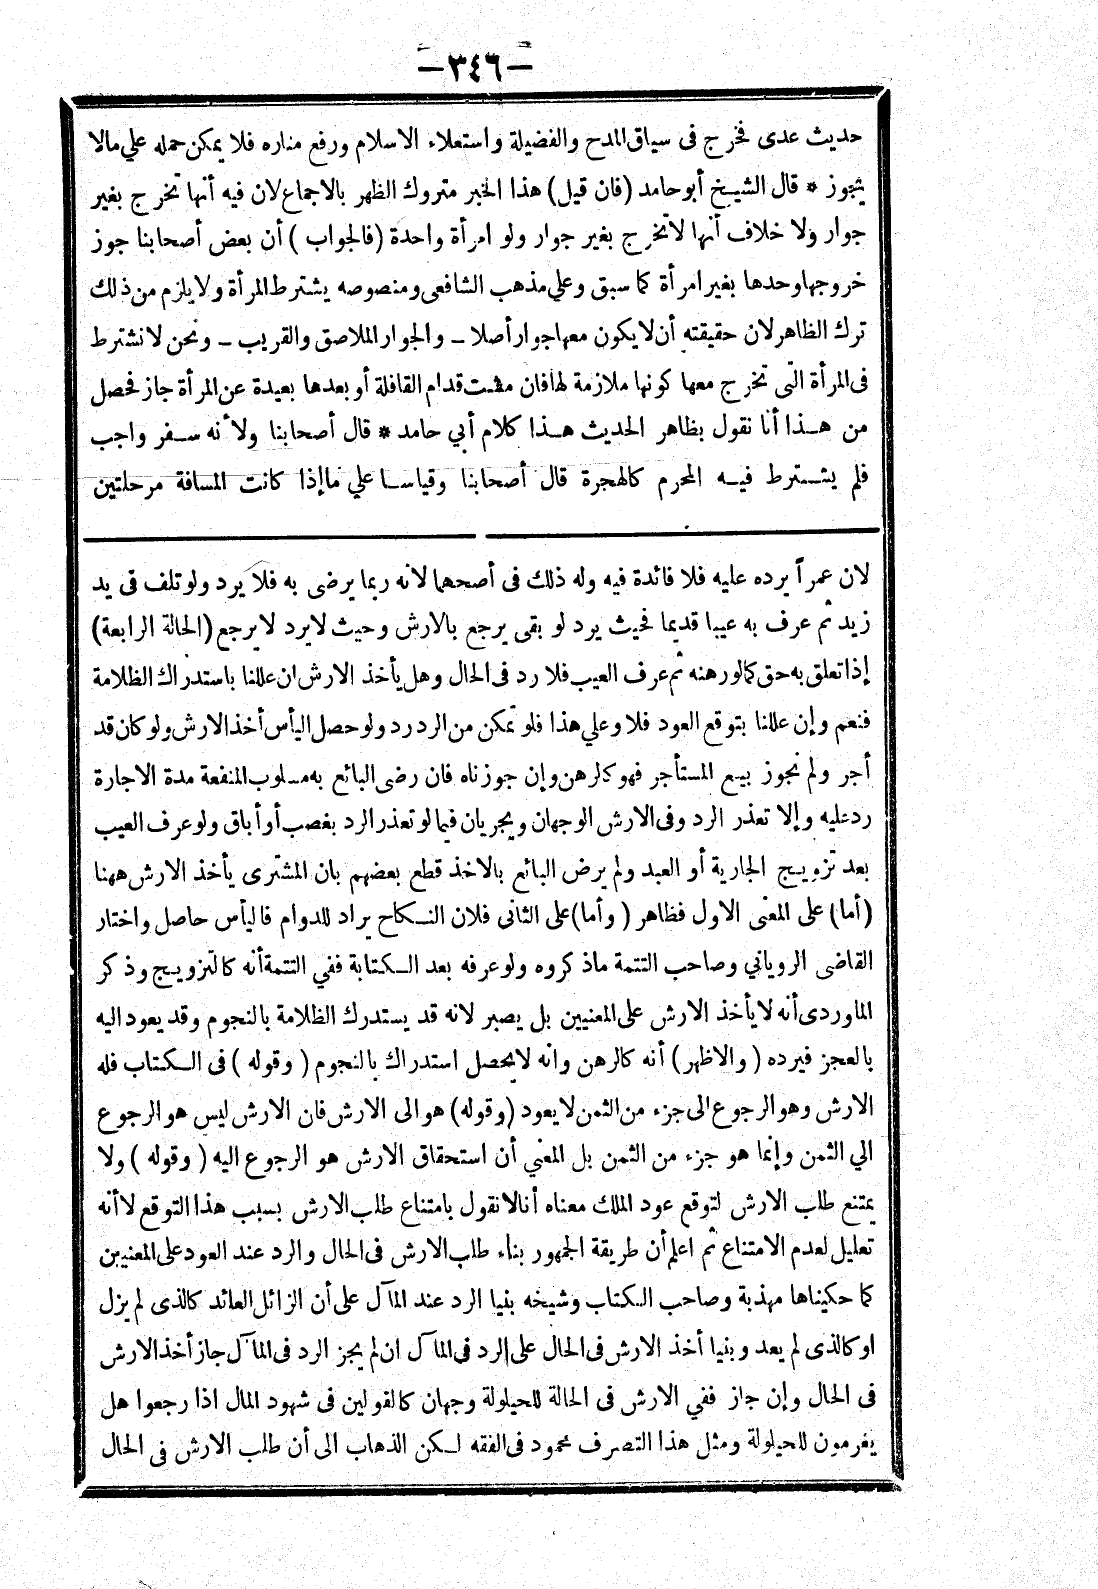 -٣٤٦-
حديث عدى فخرج فى سياق المدح والفضيلة واستعلاء الاسلام ورفع مناره فلا يمكن حمله علي مالا
يجوز * قال الشيخ أبوحامد (فان قيل) هذا الخبر متروك الظهر بالاجماع لان فيه أنها تخرج بغير
جوار ولا خلاف أنها لاتخرج بغير جوار ولو امرأة واحدة (فالجواب) أن بعض أصحابنا جوز
خروجها وحدها بغير امرأة كما سبق وعلي مذهب الشافعى ومنصوصه يشترط المرأة ولا يلزم من ذلك
ترك الظاهر لان حقيقته أن لا يكون معها جوار أصلا - والجوار الملاصق والقريب - ونحن لا نشترط
فى المرأة التى تخرج معها كونها ملازمة لها فان مشت قدام القافلة أو بعدها بعيدة عن المرأة جاز فحصل
من هذا أنا نقول بظاهر الحديث هذا كلام أبي حامد * قال أصحابنا ولأنه سفر واجب
فلم يشترط فيه المحرم كالهجرة قال أصحابنا وقياسا علي ما إذا كانت المسافة مرحلتين
لان عمراً يرده عليه فلا فائدة فيه وله ذلك فى أصحهما لانه ربما يرضى به فلا يرد ولو تلف فى يد
زيد ثم عرف به عيبا قديما فحيث يرد لو بقى يرجع بالارش وحيث لايرد لا يرجع (الحالة الرابعة)
إذا تعلق به حق كما لو رهنه ثم عرف العيب فلا رد فى الحال وهل يأخذ الارش ان عللنا باستدراك الظلامة
فنعم وإن عللنا بتوقع العود فلا وعلي هذا فلو تمكن من الرد رد ولو حصل اليأس أخذ الارش ولو كان قد
أجر ولم نجوز بيع المستأجر فهو كالرهن وإن جوزناه فان رضى البائع به مسلوب المنفعة مدة الاجارة
رد عليه وإلا تعذر الرد وفى الارش الوجهان ويجريان فيما لو تعذر الرد بغصب أو أباق ولو عرف العيب
بعد تزويج الجارية أو العبد ولم يرض البائع بالاخذ قطع بعضهم بان المشترى يأخذ الارش ههنا
(أما) على المعنى الاول فظاهر (وأما) على الثانى فلان النكاح يراد للدوام فاليأس حاصل واختار
القاضى الروياني وصاحب التتمة ماذكروه ولو عرفه بعد الكتابة ففي التتمة أنه كالتزويج وذكر
الماوردى أنه لا يأخذ الارش على المعنيين بل يصبر لانه قد يستدرك الظلامة بالنجوم وقد يعود اليه
بالعجز فيرده (والاظهر) أنه كالرهن وانه لا يحصل استدراك بالنجوم (وقوله) فى الكتاب فله
الارش وهو الرجوع الى جزء من الثمن لا يعود (وقوله) هو الى الارش فان الارش ليس هو الرجوع
الي الثمن وإنما هو جزء من الثمن بل المعني أن استحقاق الارش هو الرجوع اليه (وقوله) ولا
يمتنع طلب الارش لتوقع عود الملك معناه أنا لا نقول بامتناع طلب الارش بسبب هذا التوقع لا أنه
تعليل لعدم الامتناع ثم اعلم أن طريقة الجمهور بناء طلب الارش فى الحال والرد عند العود على المعنيين
كما حكيناها مهذبة وصاحب الكتاب وشيخه بنيا الرد عند المآل على أن الزائل العائد كالذى لم يزل
او كالذى لم يعد وبنيا أخذ الارش فى الحال على الرد فى المآل ان لم يجز الرد فى المآل جاز أخذ الارش
فى الحال وإن جاز ففي الارش فى الحالة للحيلولة وجهان كالقولين فى شهود المال اذا رجعوا هل
يغرمون للحيلولة ومثل هذا التصرف محمود فى الفقه لكن الذهاب الى أن طلب الارش فى الحال